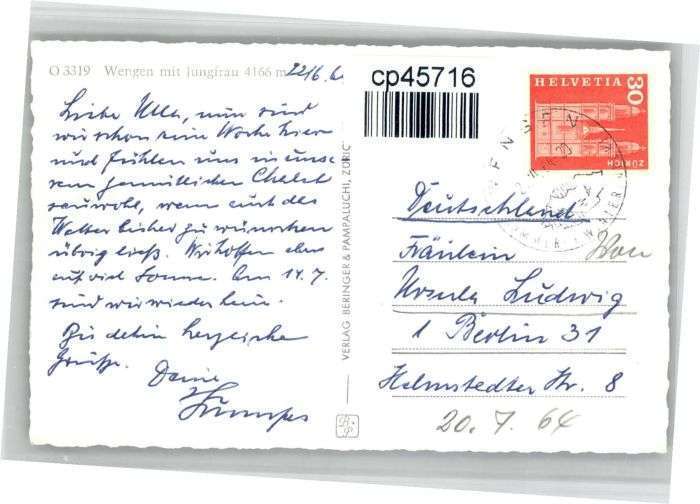 O 3319 Wengen mit Jungfrau 4166 m
cp45716
HELVETIA
30
ZÜRICH
Liebe Ulla, nun sind
wir schon eine Woche hier
und fühlen uns in unse
rem gemütlichen Chalet
sauwohl, wenn auch das
Wetter bisher zu wünschen
übrig ließ. Wir hoffen aber
auf viel Sonne. Am 14.7.
sind wir wieder heim.
Bis dahin herzliche
Grüße. Deine
VERLAG BERINGER & PAMPALUCHI, ZÜRICH
Deutschland
Fräulein
Ursula Ludwig
1 Berlin 31
Helmstedter Str. 8
20. 7. 64